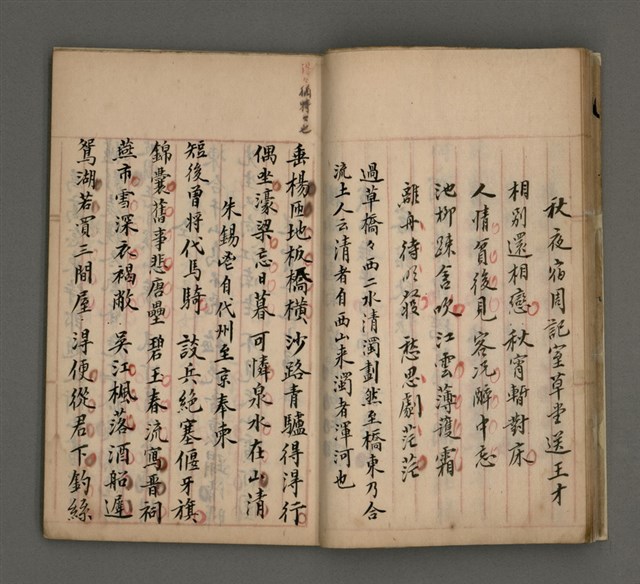 秋夜宿周記室草堂送王才
相別還相戀秋宵暫對床
人情貧後見客況醉中忘
池柳踈含吹江雲薄護霜
離舟待明發愁思劇茫茫
過草橋々西二水清濁劃然至橋東乃合
流土人云清者自西山来濁者渾河也
垂楊匝地板橋橫沙路青驢得得行
偶坐濠梁忘日暮可憐泉水在山清
朱錫鬯自代州至京奉柬
短後曾將代馬騎談兵絕塞偃牙旗
錦囊舊事悲唐壘碧玉春流寫晉祠
燕市雪深衣褐敝吳江楓落酒船遲
鴛湖若買三間屋淂便從君下釣絲